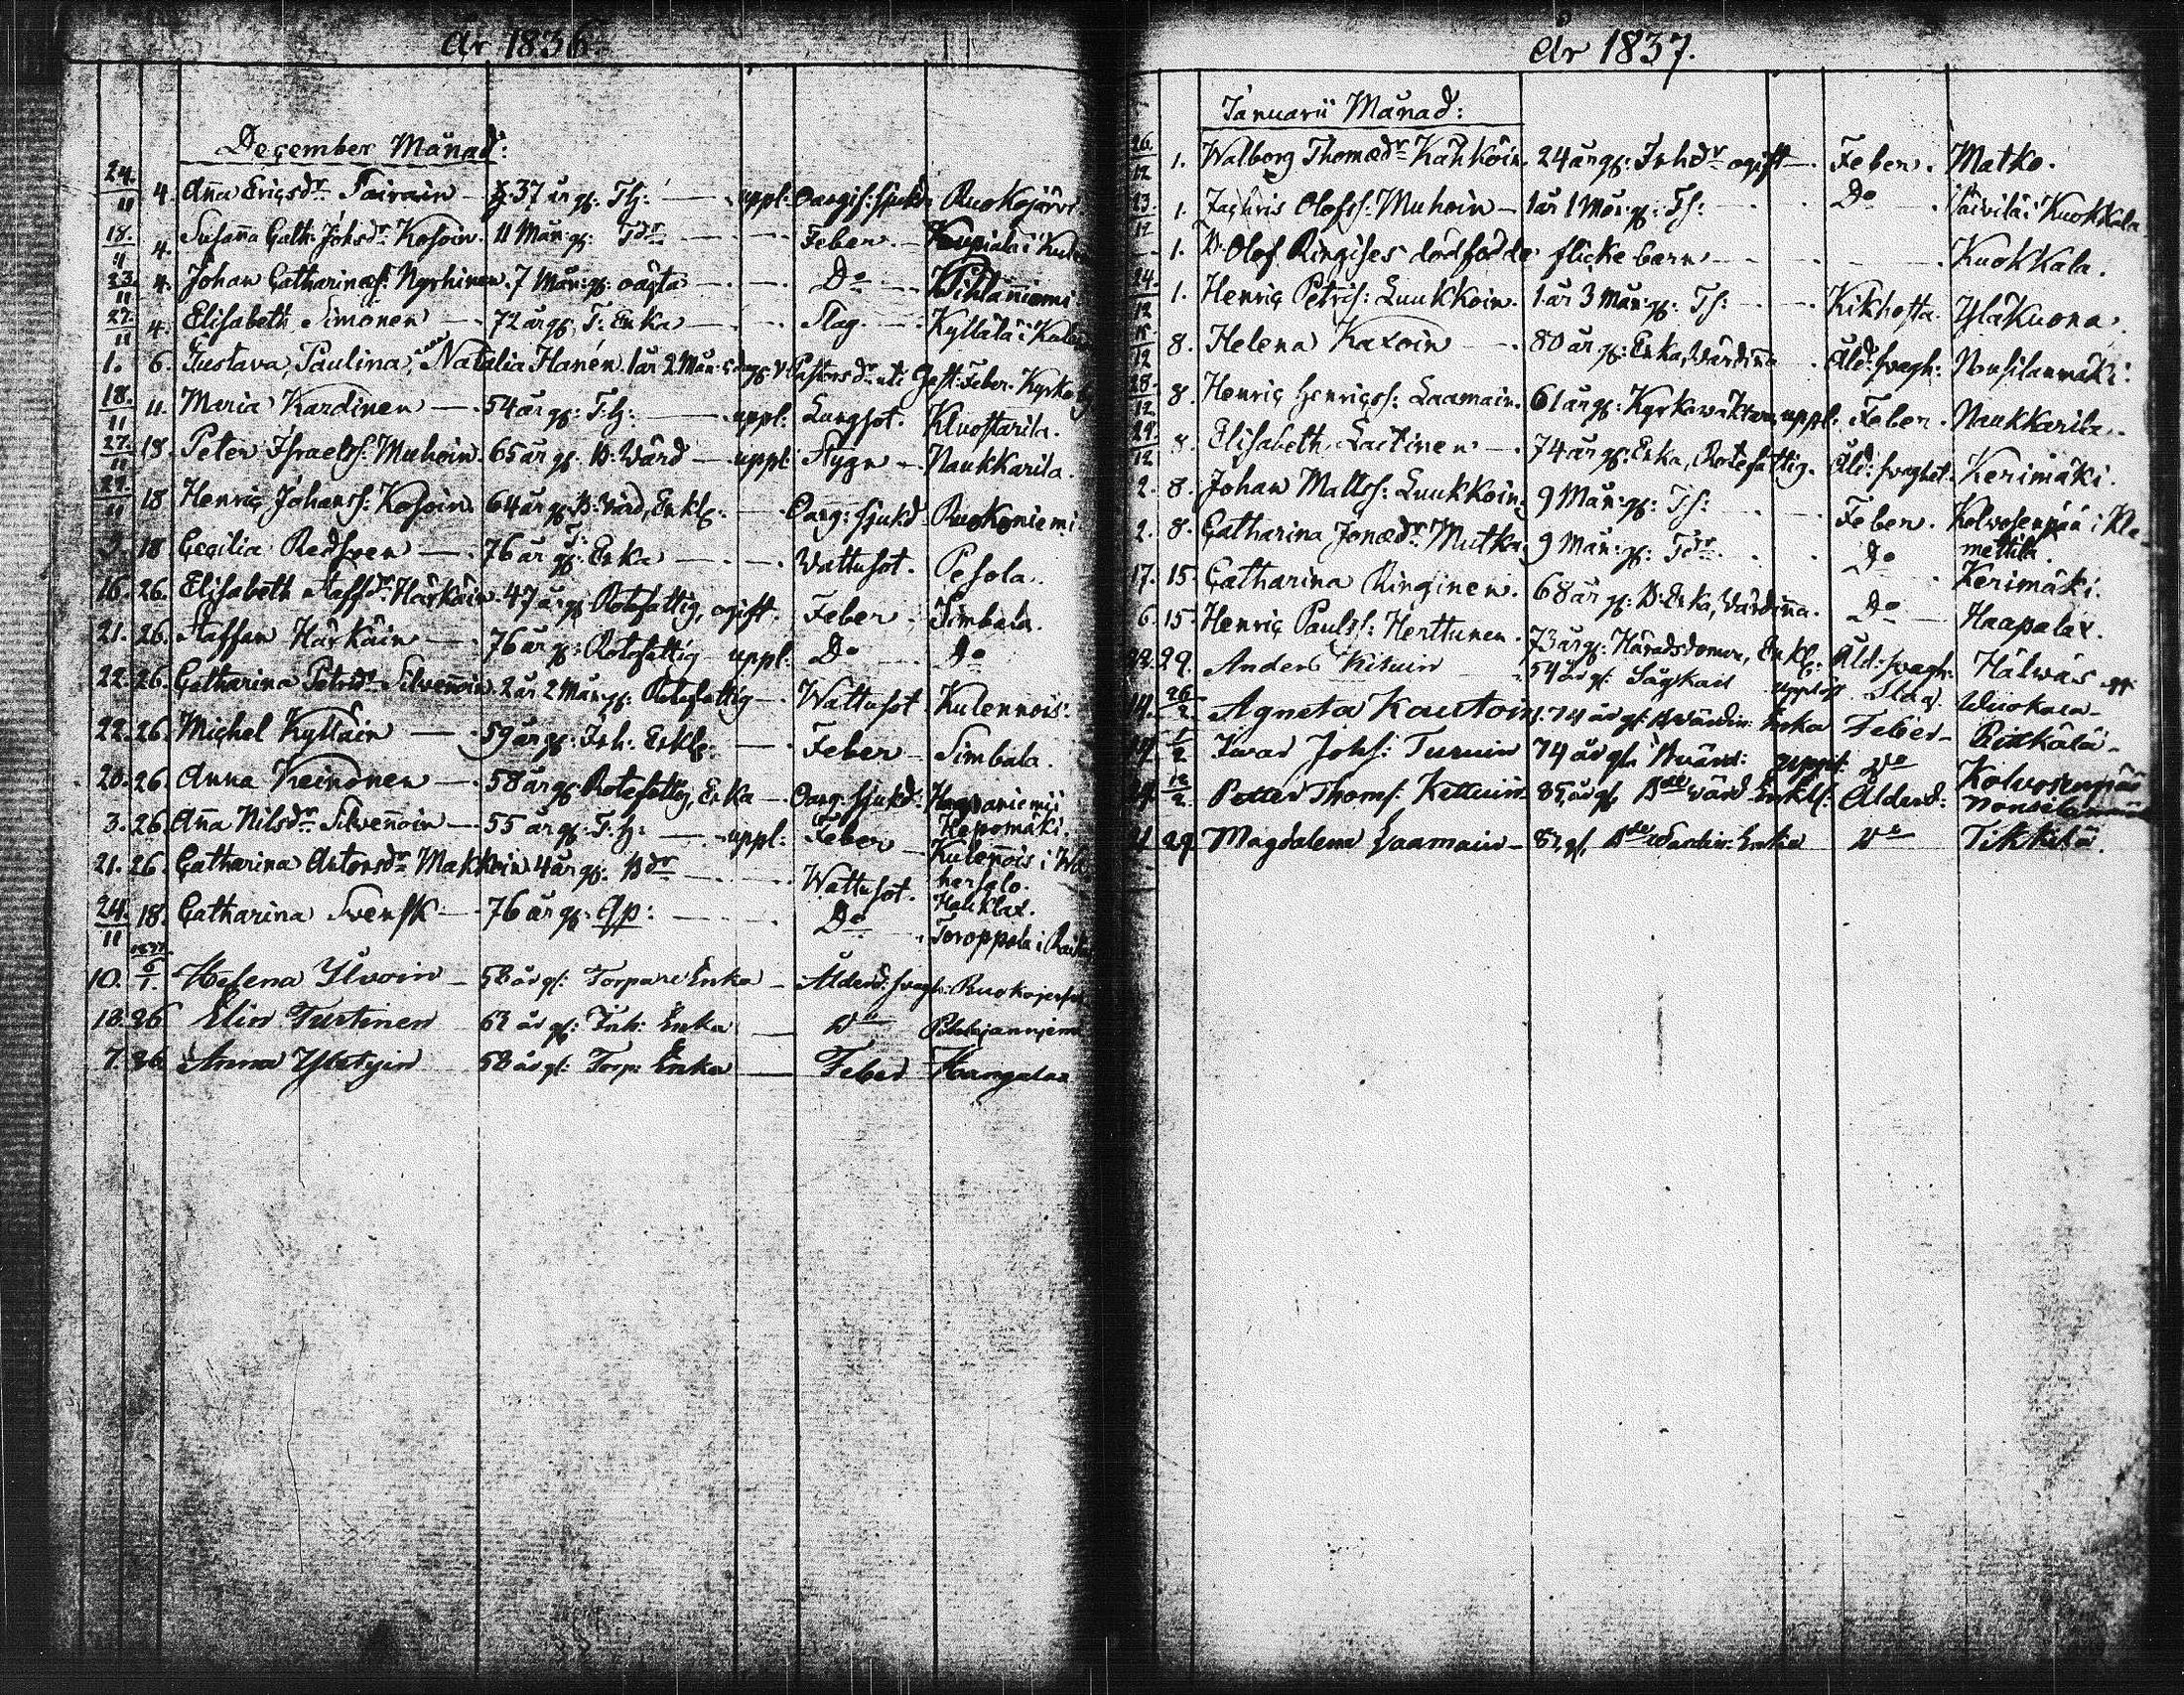 År 1836.
December Månad:
24/11 4. Aña Ericsdr Tairain 37 år gl: Th: uppl: Oangif: sjukd. Ruokojärvi
18/11 4. Susaña Cath: Johsdr Kosoin. 11 Mån: gl: Tdr Feber.
23/11 4. Johan Catharinæs: Nyrhinen. 7 Mån: gl: oägta Do Pihlañiemi
27/11 4. Elisabeth Simonen 72 år gl: T: Enka Slag. Kyllälä i
1. 6. Gustava, Paulina, Natalia Hanén. 1 år 2 Mån: gl: Pastors dr Gast: Feber. Kyrkoby
18/11 11. Maria Kardinen 54 år gl: T:h: uppl: Lungsot. Kluostarila.
27/11 18. Peter Israelss: Muhoin. 65 år gl: B: Värd uppl: Stygn Naukkarila.
29/11 18 Henric Johanss: Kosoin. 64 år gl: B: värd, Enkl: Oang: sjukd. Ruokoniemi
9. 18 Cecilia Redsven 76 år gl: T: Enka Wattusot. Pesola.
16. 26. Elisabeth Staffdr Härkäin. 47 år gl: Rotefattig, ogift. Feber Simbala.
21. 26. Staffan Härkäin 76 år gl: Rotefattig uppl: Do Do
22. 26. Catharina Petrsdr Silveñoin. 2 år 2 Mån: gl: Rotefattig Wattusot Kulennois.
22. 26. Michel Kylläin 59 år gl: Inh: Enkl: Feber Simbala.
20. 26. Anna Keinonen 58 år gl: Rotefattig, Enka Oang: sjukd:
3. 26. Aña Nilsdr Silveñoin 55 år gl: T: h: uppl: Feber Hepomäki. Kuleñois i
21. 26. Catharina Antonsdr Makkoin 4 år gl: Bdr Wattusot. hersalo. Hauklax.
24/11 18. Catharina Svensk 76 år gl: Do Toroppala i
10. 6/1 1837 Helena Ylvoin 58 år gl: Torpare Enka Ålderd: svagh: Ruokojerfvi
18. 26 Elin Turtinen 62 år gl: Inh: Enka Do
7. 26 Anna 58 år gl: Torp: Enka Feber
År 1837.
Januarii Månad:
26/12 1. Walborg Thomædr Kähköin. 24 år gl: Inhdr ogift Feber. Matko.
23/12 1. Zachris Olofss: Muhoin 1 år 1 Mån: gl: Ts: Do Päivilä i Kuokkala
1. B. Olof Ringises dödfödde flicke barn Kuokkala.
24/12 1. Henric Petris: Luukkoin. 1 år 3 Mån: gl: Ts: Kikhosta. Yläkuona.
15/12 8. Helena Kaxoin 80 år gl: Enka, Värdiña Åld: svagh: Nousilanmäki:
28/12 8. Henric Henricss: Laamain. 61 år gl: Kyrkováktare, uppl: Feber. Naukkarila.
29/12 8. Elisabeth Laitinen 74 år gl: Enka, Rotefattig. Åld: svaghet. Kerimäki.
2. 8. Johan Mattss: Luukkoin. 9 Mån: gl: Ts: Feber. Kolvosenpää i Kle-
2. 8. Catharina Jonædr Mutka 9 Mån: gl: Tdr. Do mettilä.
17. 15. Catharina Ringinen. 68 år gl: B: Enka, Värdiña. Do Kerimäki.
6. 15. Henric Paulss: Herttunen. 73 år gl: Häradsdomare, Enkl: Åld: svagh: Haapalax.
22. 29. Anders Kituin 54 år gl: Sågkarl Slag. Hälväs
14. 26/2 Agneta Kautoin. 74 år gl: B: värdin: Enka Feber
19. 1/2 Ivar Johs: Turuin 74 år gl: B: värd: uppl: Do
12/2 Petter Thoms: Kettuin 85 år gl: Bde värd Enkl: Ålderd: Kolvosenpää
21 29 Magdalena Laamain 82 gl: Bde Värdin: Enka Do